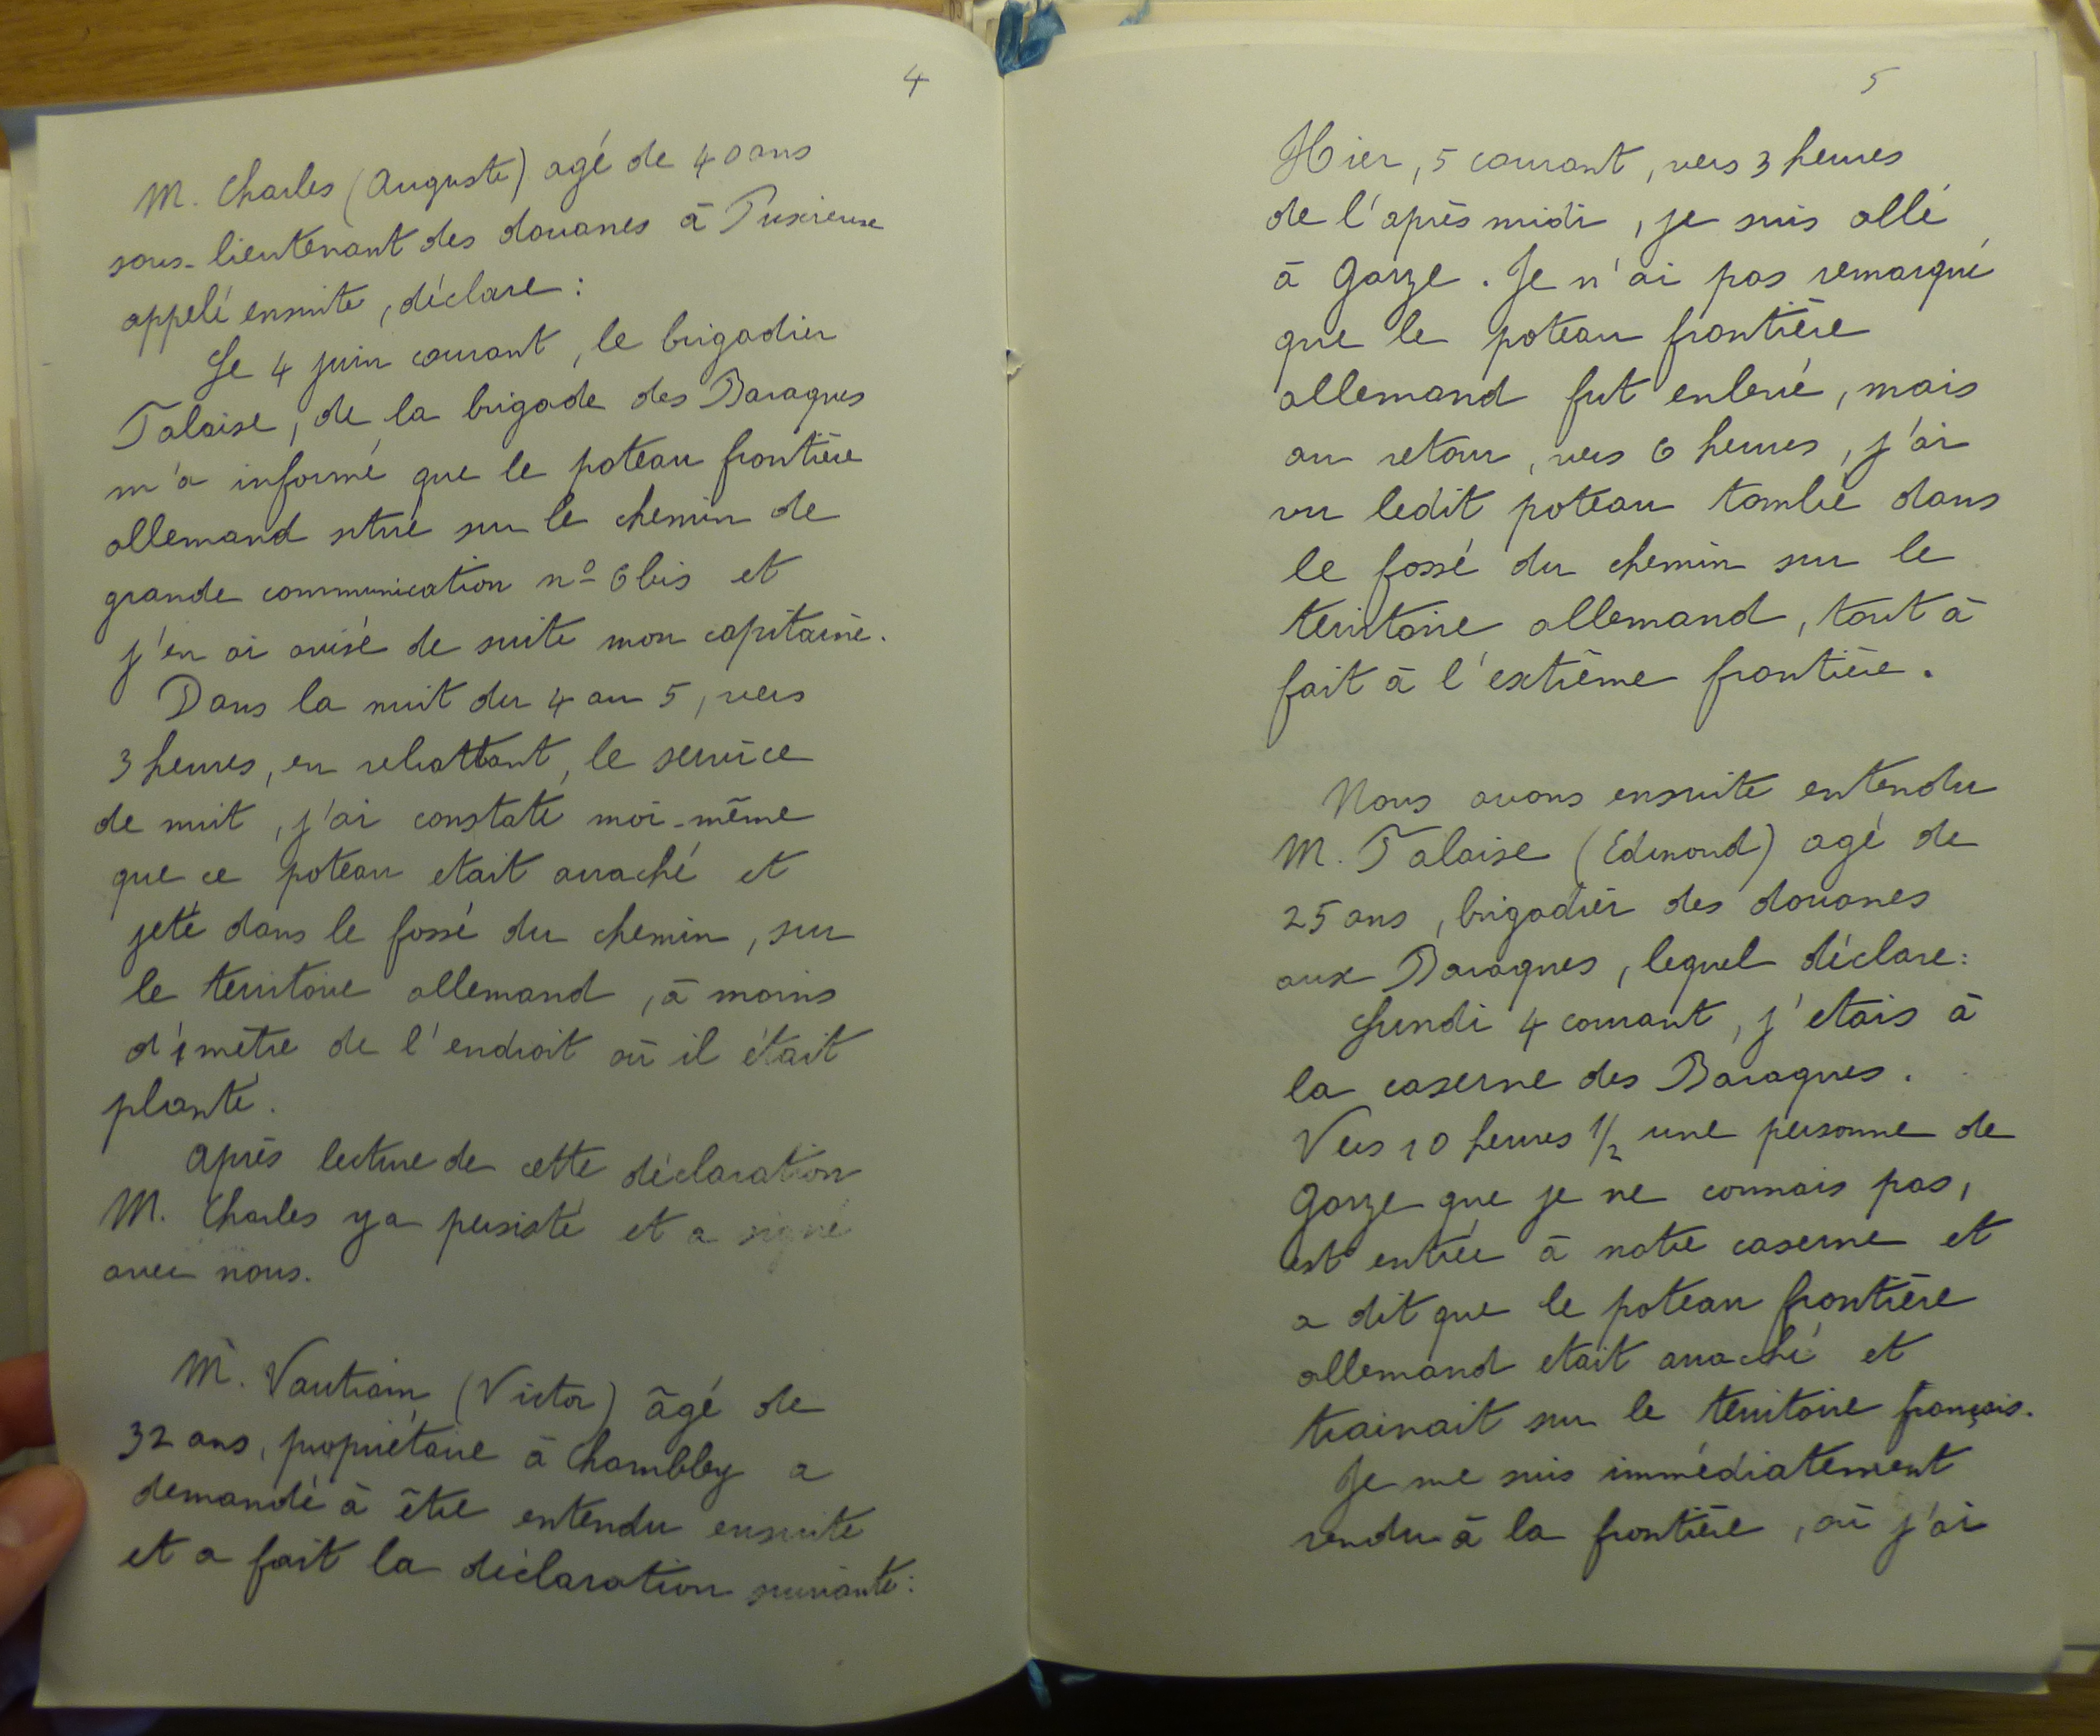 4
M. Charles (Auguste) agé de 40 ans
sous-lieutenant des douanes à Puxieuse
appelé ensuite, déclare :
Le 4 juin courant, le brigadier
Talaise, de la brigade des Baraques
m'a informé que le poteau frontière
allemand situé sur le chemin de
grande communication nº 6 bis et
j'en ai avisé de suite mon capitaine.
Dans la nuit du 4 au 5, vers
3 heures, en rebattant, le service
de nuit, j'ai constaté moi-même
que ce poteau etait arraché et
jeté dans le fossé du chemin, sur
le territoire allemand, à moins
d'1 mètre de l'endroit où il était
planté.
Après lecture de cette déclaration
M. Charles y a persisté et a signé
avec nous.
M. Vautrain (Victor) âgé de
32 ans, propriétaire à Chambley a
demandé à être entendu ensuite
et a fait la déclaration suivante :
5
Hier, 5 courant, vers 3 heures
de l'après midi, je suis allé
à Gorze. Je n'ai pas remarqué
que le poteau frontière
allemand fut enlevé, mais
au retour, vers 6 heures, j'ai
vu ledit poteau tombé dans
le fossé du chemin sur le
territoire allemand, tout à
fait à l'extrême frontière.
Nous avons ensuite entendu
M. Talaise (Edmond) agé de
25 ans, brigadier des douanes
aux Baraques, lequel déclare :
Lundi 4 courant, j'etais à
la caserne des Baraques.
Vers 10 heures 1/2 une personne de
Gorze que je ne connais pas,
est entrée à notre caserne et
a dit que le poteau frontière
allemand etait arraché et
trainait sur le territoire français.
Je me suis immédiatement
rendu à la frontière, où j'ai